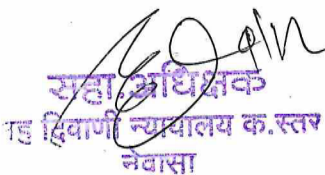 सहा. अधिक्षक
दिवाणी न्यायालय क.स्तर
नेवासा